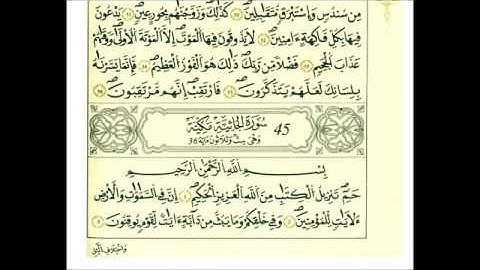 مِن سُندُسٍ وَإِسْتَبْرَقٍ مُّتَقَٰبِلِينَ كَذَٰلِكَ وَزَوَّجْنَٰهُم بِحُورٍ عِينٍ يَدْعُونَ
فِيهَا بِكُلِّ فَٰكِهَةٍ ءَامِنِينَ لَا يَذُوقُونَ فِيهَا ٱلْمَوْتَ إِلَّا ٱلْمَوْتَةَ ٱلْأُولَىٰ وَوَقَىٰهُمْ
عَذَابَ ٱلْجَحِيمِ فَضْلًا مِّن رَّبِّكَ ذَٰلِكَ هُوَ ٱلْفَوْزُ ٱلْعَظِيمُ فَإِنَّمَا يَسَّرْنَٰهُ
بِلِسَانِكَ لَعَلَّهُمْ يَتَذَكَّرُونَ فَٱرْتَقِبْ إِنَّهُم مُّرْتَقِبُونَ
45 سُورَةُ ٱلْجَاثِيَةِ مَكِّيَّةٌ
وَهْيَ سِتٌّ وَثَلَاثُونَ ءَايَةً 36
بِسْمِ ٱللَّهِ ٱلرَّحْمَٰنِ ٱلرَّحِيمِ
حم تَنزِيلُ ٱلْكِتَٰبِ مِنَ ٱللَّهِ ٱلْعَزِيزِ ٱلْحَكِيمِ إِنَّ فِي ٱلسَّمَٰوَٰتِ وَٱلْأَرْضِ
لَأٓيَٰتٍ لِّلْمُؤْمِنِينَ وَفِي خَلْقِكُمْ وَمَا يَبُثُّ مِن دَآبَّةٍ ءَايَٰتٌ لِّقَوْمٍ يُوقِنُونَ
وَٱخْتِلَٰفِ ٱلَّيْلِ